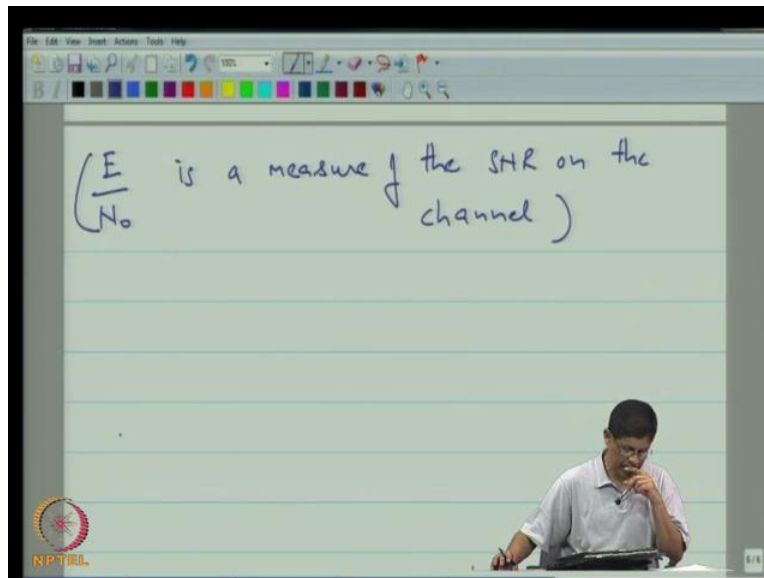 File Edit View Insert Actions Tools Help
100%
B I
( E / N₀ is a measure of the SNR on the
channel )
NPTEL
6/6